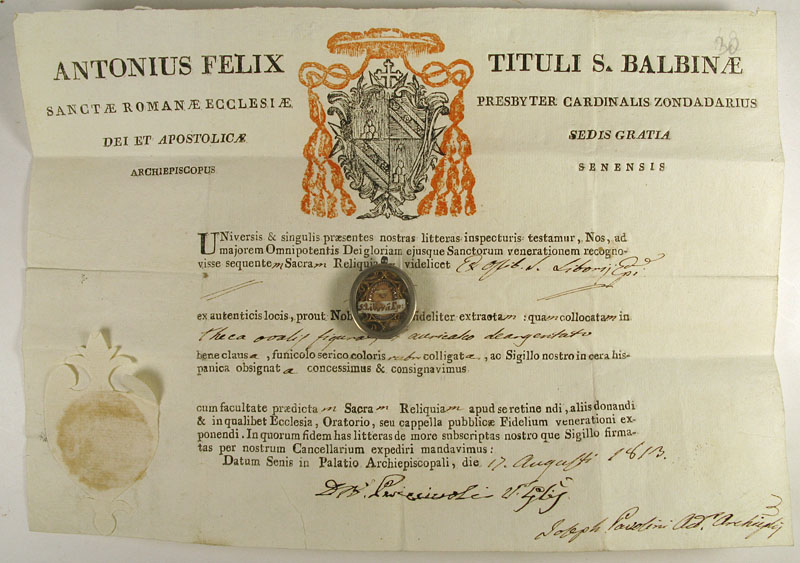 30
ANTONIUS FELIX TITULI S. BALBINÆ
SANCTÆ ROMANÆ ECCLESIÆ PRESBYTER CARDINALIS ZONDADARIUS
DEI ET APOSTOLICÆ SEDIS GRATIA
ARCHIEPISCOPUS SENENSIS
UNiversis & singulis præsentes nostras litteras inspecturis testamur, Nos, ad
majorem Omnipotentis Dei gloriam ejusque Sanctorum venerationem recogno-
visse sequentem Sacram Reliquiam videlicet Ex Ossib. S. Liborij Epi.
ex autenticis locis, prout Nob fideliter extractam: quam collocatam in
theca ovalis figuræ auricalco deargentato
bene clausa, funicolo serico coloris rubr colligata, ac Sigillo nostro in cera his-
panica obsignata concessimus & consignavimus
cum facultate prædictam Sacram Reliquiam apud se retinendi, aliis donandi
& in qualibet Ecclesia, Oratorio, seu cappella pubblicæ Fidelium venerationi ex-
ponendi. In quorum fidem has litteras de more subscriptas nostro que Sigillo firma-
tas per nostrum Cancellarium expediri mandavimus:
Datum Senis in Palatio Archiepiscopali, die 17. Augusti 1813.
Joseph